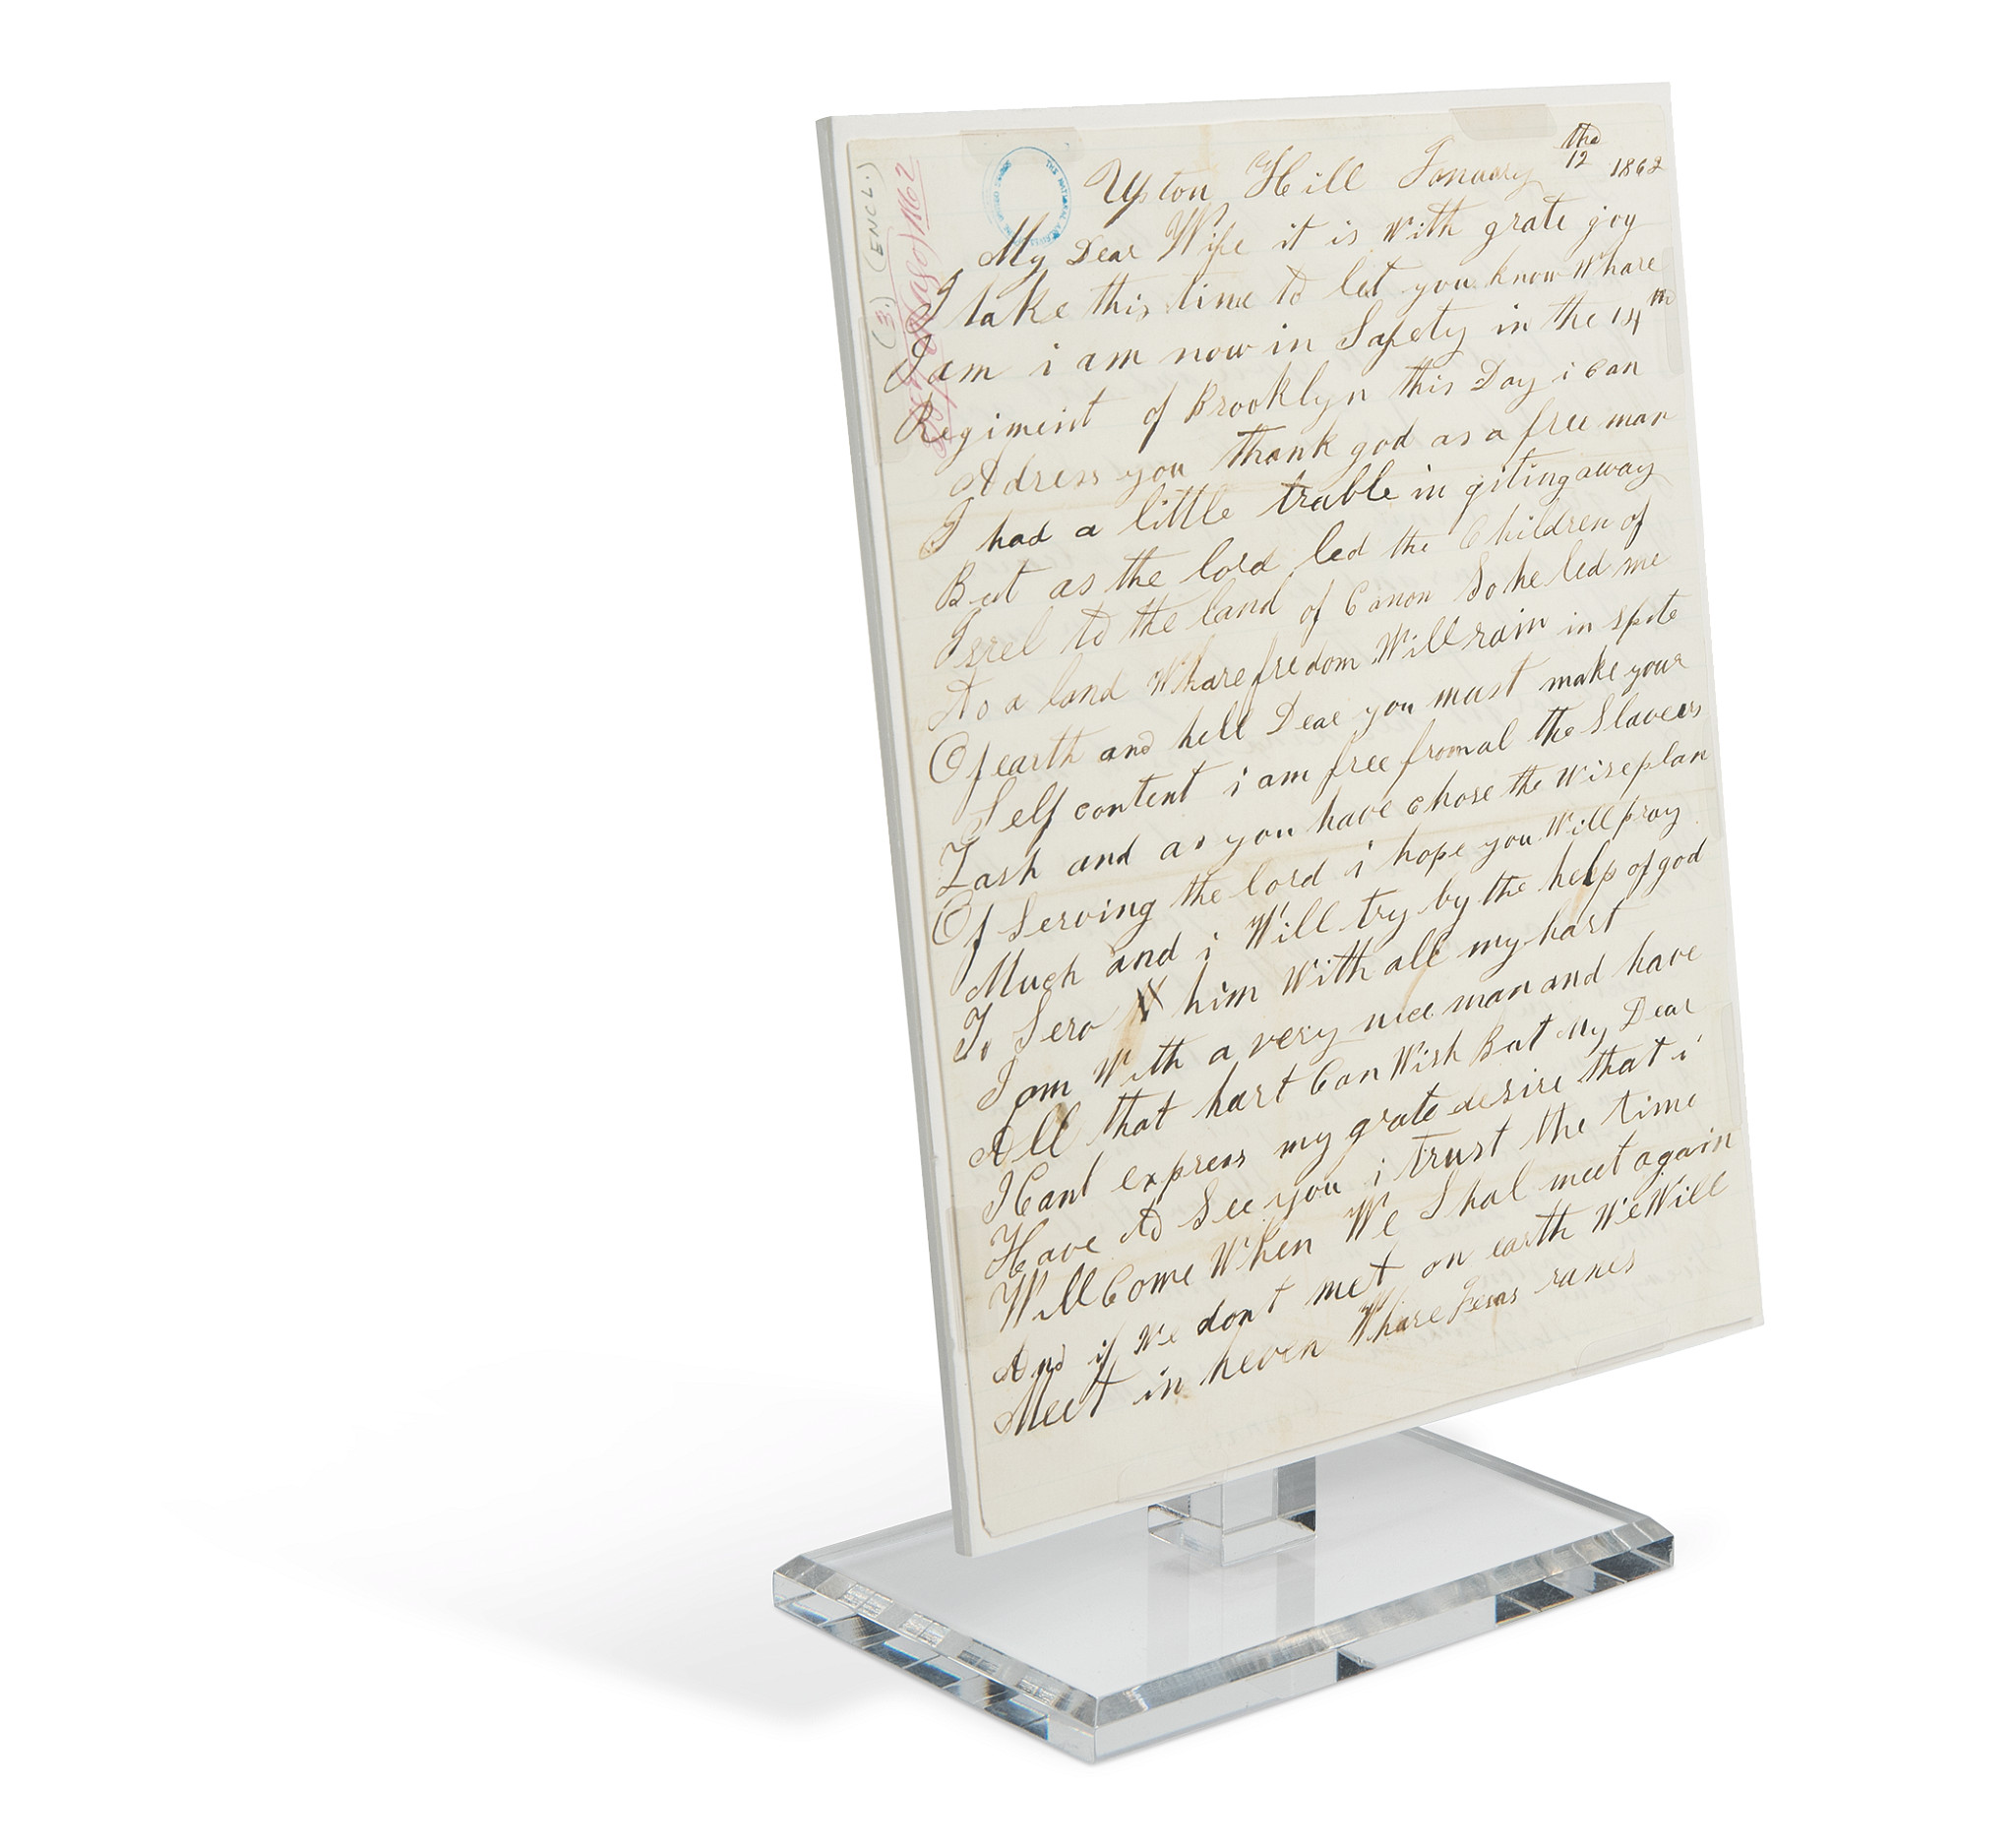 Upton Hill January the 12 1862
My Dear Wife it is with grate joy
I take this time to let you know Whare
I am i am now in Safety in the 14th
Regiment of Brooklyn this Day i can
Adress you thank god as a free man
I had a little truble in giting away
But as the lord led the Children of
Isrel to the land of Canon So he led me
To a land Whare fredom Will rain in spite
Of earth and hell Dear you must make your
Self content i am free from al the Slavers
Lash and as you have chose the Wise plan
Of Serving the lord i hope you Will pray
Much and i Will try by the help of god
To Serv him With all my hart
I am With a very nice man and have
All that hart Can Wish But My Dear
I Cant express my grate desire that i
Have to See you i trust the time
Will Come When We Shal meet again
And if We dont met on earth We Will
Meet in heven Whare Jesas ranes
(ENCL.)
(3.)
1862
THE NATIONAL ARCHIVES